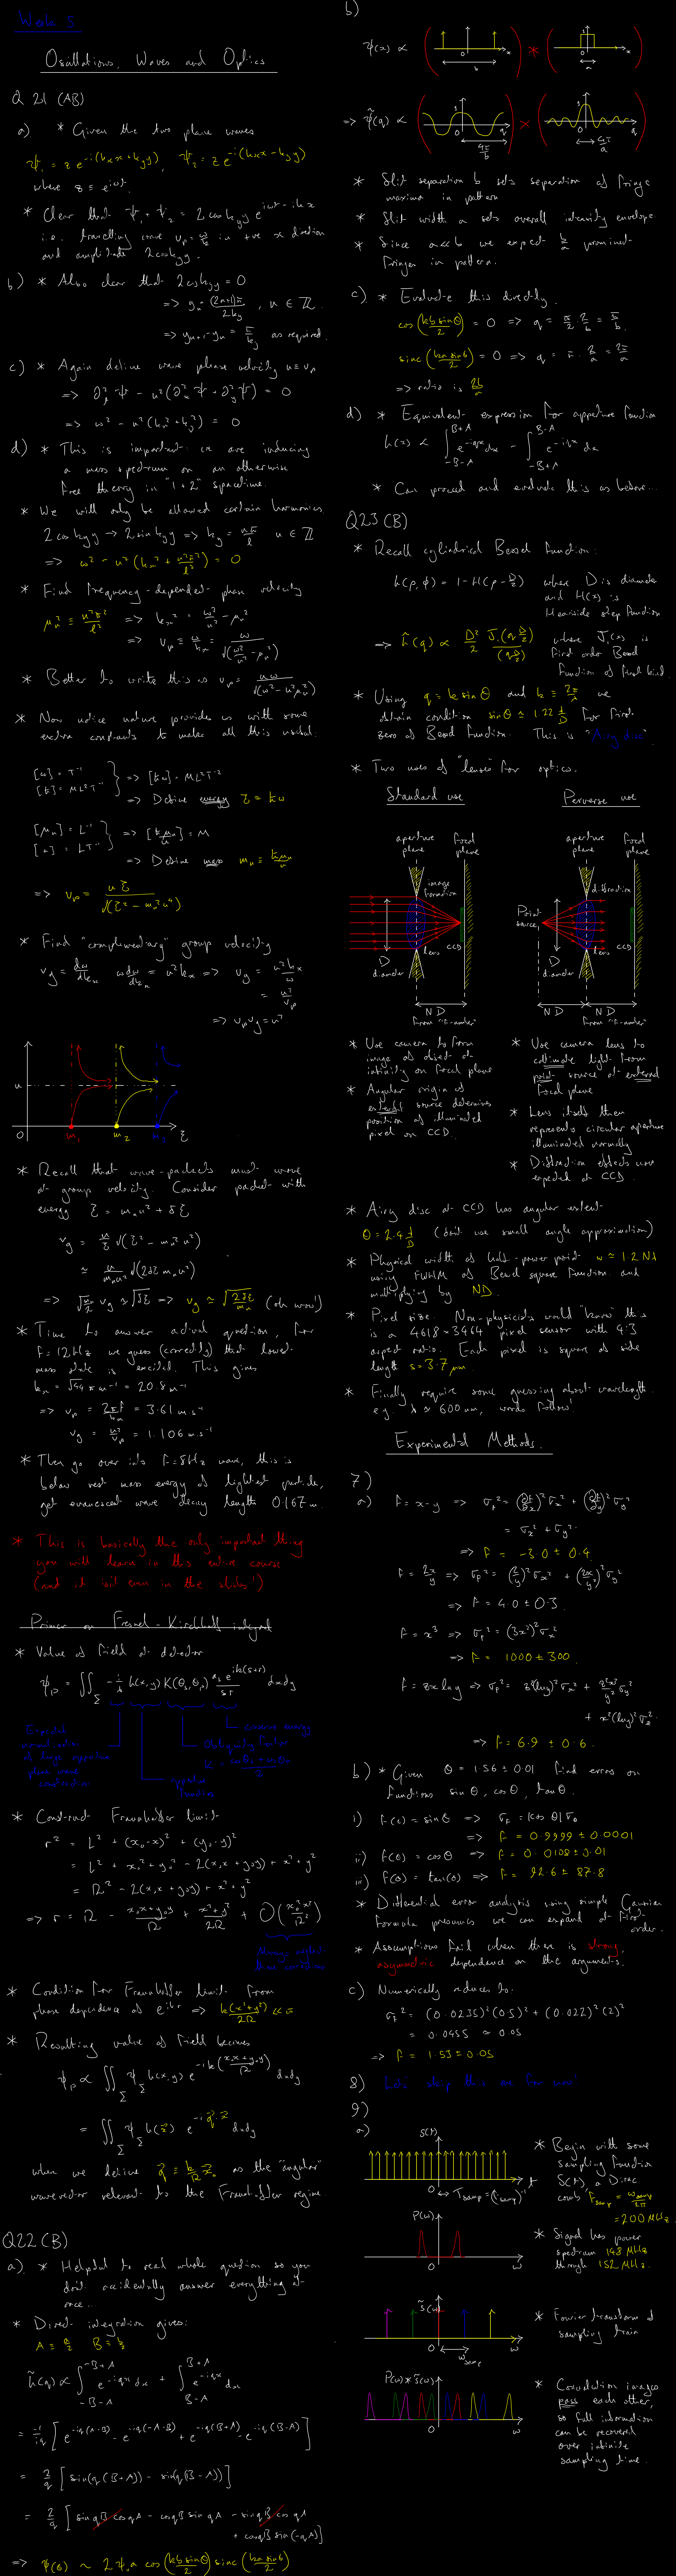 Week 5
Oscillations, Waves and Optics
Q 21 (AB)
a) * Given the two plane waves
ψ₁ = z e^{-i(kₓx + k_y y)}, ψ₂ = z e^{-i(kₓx - k_y y)}
where z ≡ e^{iωt}.
* Clear that ψ₁ + ψ₂ = 2 cos k_y y e^{iωt - ikₓx}
i.e. travelling wave v_p = ω/kₓ in +ve x direction
and amplitude 2 cos k_y y.
b) * Also clear that 2 cos k_y y = 0
=> y_n = (2n+1)π / 2k_y , n ∈ Z
=> y_{n+1} - y_n = π/k_y as required.
c) * Again define wave phase velocity u ≡ v_p
=> ∂_t²ψ - u²(∂ₓ²ψ + ∂_y²ψ) = 0
=> ω² - u²(kₓ² + k_y²) = 0
d) * This is important: we are inducing
a mass spectrum on an otherwise
free theory in "1+2" spacetime.
* We will only be allowed certain harmonics
2 cos k_y y → 2 sin k_y y => k_y = nπ/l n ∈ Z
=> ω² - u²(kₓ² + n²π²/l²) = 0
* Find frequency-dependent phase velocity
μ_n² ≡ n²π²/l² => kₓ² = ω²/u² - μ_n²
=> v_p ≡ ω/kₓ = ω/√(ω²/u² - μ_n²)
* Better to write this as v_p = uω/√(ω² - u²μ_n²)
* Now notice nature provides us with some
extra constants to make all this useful:
[ω] = T⁻¹
[ħ] = ML²T⁻¹ } => [ħω] = ML²T⁻²
=> Define energy E = ħω
[μ_n] = L⁻¹
[u] = LT⁻¹ } => [ħμ_n/u] = M
=> Define mass m_n ≡ ħμ_n/u
=> v_p = uE/√(E² - m_n²u⁴)
* Find "complimentary" group velocity
v_g = dω/dkₓ ω dω/dkₓ = u²kₓ => v_g = u²kₓ/ω
= u²/v_p
=> v_p v_g = u²
u
O m₁ m₂ m₃ E
* Recall that wave-packets must move
at group velocity. Consider packet with
energy E = m_n u² + δE
=> v_g ≃ √(2δE/m_n) (oh wow!)
* Time to answer actual question, for
f = 12Hz we guess (correctly) that lowest
mass state is excited. This gives
kₓ = √44 π m⁻¹ = 20.8 m⁻¹
=> v_p = 2πf/kₓ = 3.61 m s⁻¹
v_g = u²/v_p = 1.106 m s⁻¹
* Then go over into f = 8Hz wave, this is
below rest mass energy of lightest particle,
get evanescent wave decay length 0.167 m.
* This is basically the only important thing
you will learn in this entire course
(and it isn't even in the slides!)
Primer on Fresnel-Kirchhoff integral
* Value of field at detector
ψ_p = ∬_Σ -i/λ h(x,y) K(θ₀,θ_p) a_s e^{ik(s+r)}/sr dxdy
conserve energy
Obliquity factor
K = (cosθ₀ + cosθ_p)/2
aperture function
* Construct Fraunhoffer limit
r² = L² + (x₀-x)² + (y₀-y)²
= L² + x₀² + y₀² - 2(x₀x + y₀y) + x² + y²
= R² - 2(x₀x + y₀y) + x² + y²
=> r = R - (x₀x + y₀y)/R + (x² + y²)/2R + O(x₀²x²/R³)
* Condition for Fraunhoffer limit from
phase dependence of e^{ikr} => k(x²+y²)/2R << π
* Resulting value of field becomes
ψ_p ∝ ∬_Σ ψ_Σ h(x,y) e^{-ik(x₀x + y₀y)/R} dxdy
= ∬_Σ ψ_Σ h(x) e^{-iq·x} dxdy
when we define q ≡ k/R x₀ as the "angular"
wavevector relevant to the Fraunhoffer regime.
Q22 (B)
a) * Helpful to read whole question so you
don't accidentally answer everything at
once...
* Direct integration gives:
A ≡ a/2 B ≡ b/2
h̃(q) ∝ ∫_{-B-A}^{-B+A} e^{-iqx} dx + ∫_{B-A}^{B+A} e^{-iqx} dx
= -1/iq [e^{-iq(A-B)} - e^{-iq(-A-B)} + e^{-iq(B+A)} - e^{-iq(B-A)}]
= 2/q [sin(q(B+A)) - sin(q(B-A))]
= 2/q [sin qB cos qA - cos qB sin qA - sin qB cos qA
+ cos qB sin(-qA)]
=> ψ(θ) ~ 2ψ₀a cos(kb sinθ/2) sinc(ka sinθ/2)
b)
ψ(x) ∝ ( O x b ) * ( 1 O x a )
=> ψ̃(q) ∝ ( 1 O q 4π/b ) × ( 1 O q 4π/a )
* Slit separation b sets separation of fringe
maxima in pattern
* Slit width a sets overall intensity envelope
* Since a<<b we expect b/a prominent
fringes in pattern.
c) * Evaluate this directly.
cos(kb sinθ/2) = 0 => q = π/2 · 2/b = π/b
sinc(ka sinθ/2) = 0 => q = π · 2/a = 2π/a
=> ratio is 2b/a
d) * Equivalent expression for apperture function
h(x) ∝ ∫_{-B-A}^{B+A} e^{-iqx} dx - ∫_{-B+A}^{B-A} e^{-iqx} dx
* Can proceed and evaluate this as before...
Q23 (B)
* Recall cylindrical Bessel function:
h(ρ,φ) = 1 - H(ρ - D/2) where D is diameter
and H(x) is
Heaviside step function
=> h̃(q) ∝ D²/2 J₁(qD/2)/(qD/2) where J₁(x) is
first order Bessel
function of first kind.
* Using q = k sinθ and k = 2π/λ we
obtain condition sinθ ≃ 1.22 λ/D for first
zero of Bessel function. This is "Airy disc".
* Two uses of "lenses" for optics.
Standard use
Perverse use
aperture plane
focal plane
image formation
D diameter
lens
CCD
ND
from "f-number"
aperture plane
focal plane
diffraction
Point source
D diameter
lens
CCD
ND
ND
from "f-number"
* Use camera to form
image of object at
infinity on focal plane
* Angular origin of
external source determines
position of illuminated
pixel on CCD.
* Use camera lens to
collimate light from
point source at external
focal plane
* Lens itself then
represents circular aperture
illuminated normally
* Diffraction effects now
expected at CCD.
* Airy disc at CCD has angular extent
θ = 2.4 λ/D (don't use small angle approximation)
* Physical width of half-power point w ≃ 1.2 Nλ
using FWHM of Bessel square function and
multiplying by ND.
* Pixel size. Non-physicists would "know" this
is a 4618 × 3464 pixel sensor with 4:3
aspect ratio. Each pixel is square of side
length s = 3.7 μm.
* Finally require some guessing about wavelength
e.g. λ ≃ 600 nm, words follow!
Experimental Methods.
7)
a) f = x - y => σ_f² = (∂f/∂x)² σₓ² + (∂f/∂y)² σ_y²
= σₓ² + σ_y²
=> f = -3.0 ± 0.4
f = 2x/y => σ_f² = (2/y)² σₓ² + (2x/y²)² σ_y²
=> f = 4.0 ± 0.3
f = x³ => σ_f² = (3x²)² σₓ²
=> f = 1000 ± 300
=> f = 6.9 ± 0.6.
b) * Given θ = 1.56 ± 0.01 find errors on
functions sinθ, cosθ, tanθ.
i) f(θ) = sinθ => σ_f = |cosθ| σ_θ
=> f = 0.9999 ± 0.0001
ii) f(θ) = cosθ => f = 0.0108 ± 0.01
iii) f(θ) = tan(θ) => f = 92.6 ± 87.8
* Differential error analysis using simple Gaussian
formula presumes we can expand at first
order.
* Assumptions fail when there is strong,
asymmetric dependence on the arguments.
c) Numerically reduces to:
σ_f² = (0.0235)²(0.5)² + (0.022)²(2)²
= 0.0455 ≃ 0.05
=> f = 1.53 ± 0.05
8) Lets skip this one for now!
9)
a) S(t)
t
T_samp = (f_samp)⁻¹
* Begin with some
sampling function
S(t), a Dirac
comb f_samp = ω_samp/2π
= 200 MHz.
P(ω)
O ω
* Signal has power
spectrum 148 MHz
through 152 MHz.
S̃(ω)
O ω
ω_samp
* Fourier transform of
sampling train
P(ω) * S̃(ω)
O ω
* Convolution images
pass each other,
so full information
can be recovered
over infinite
sampling time.